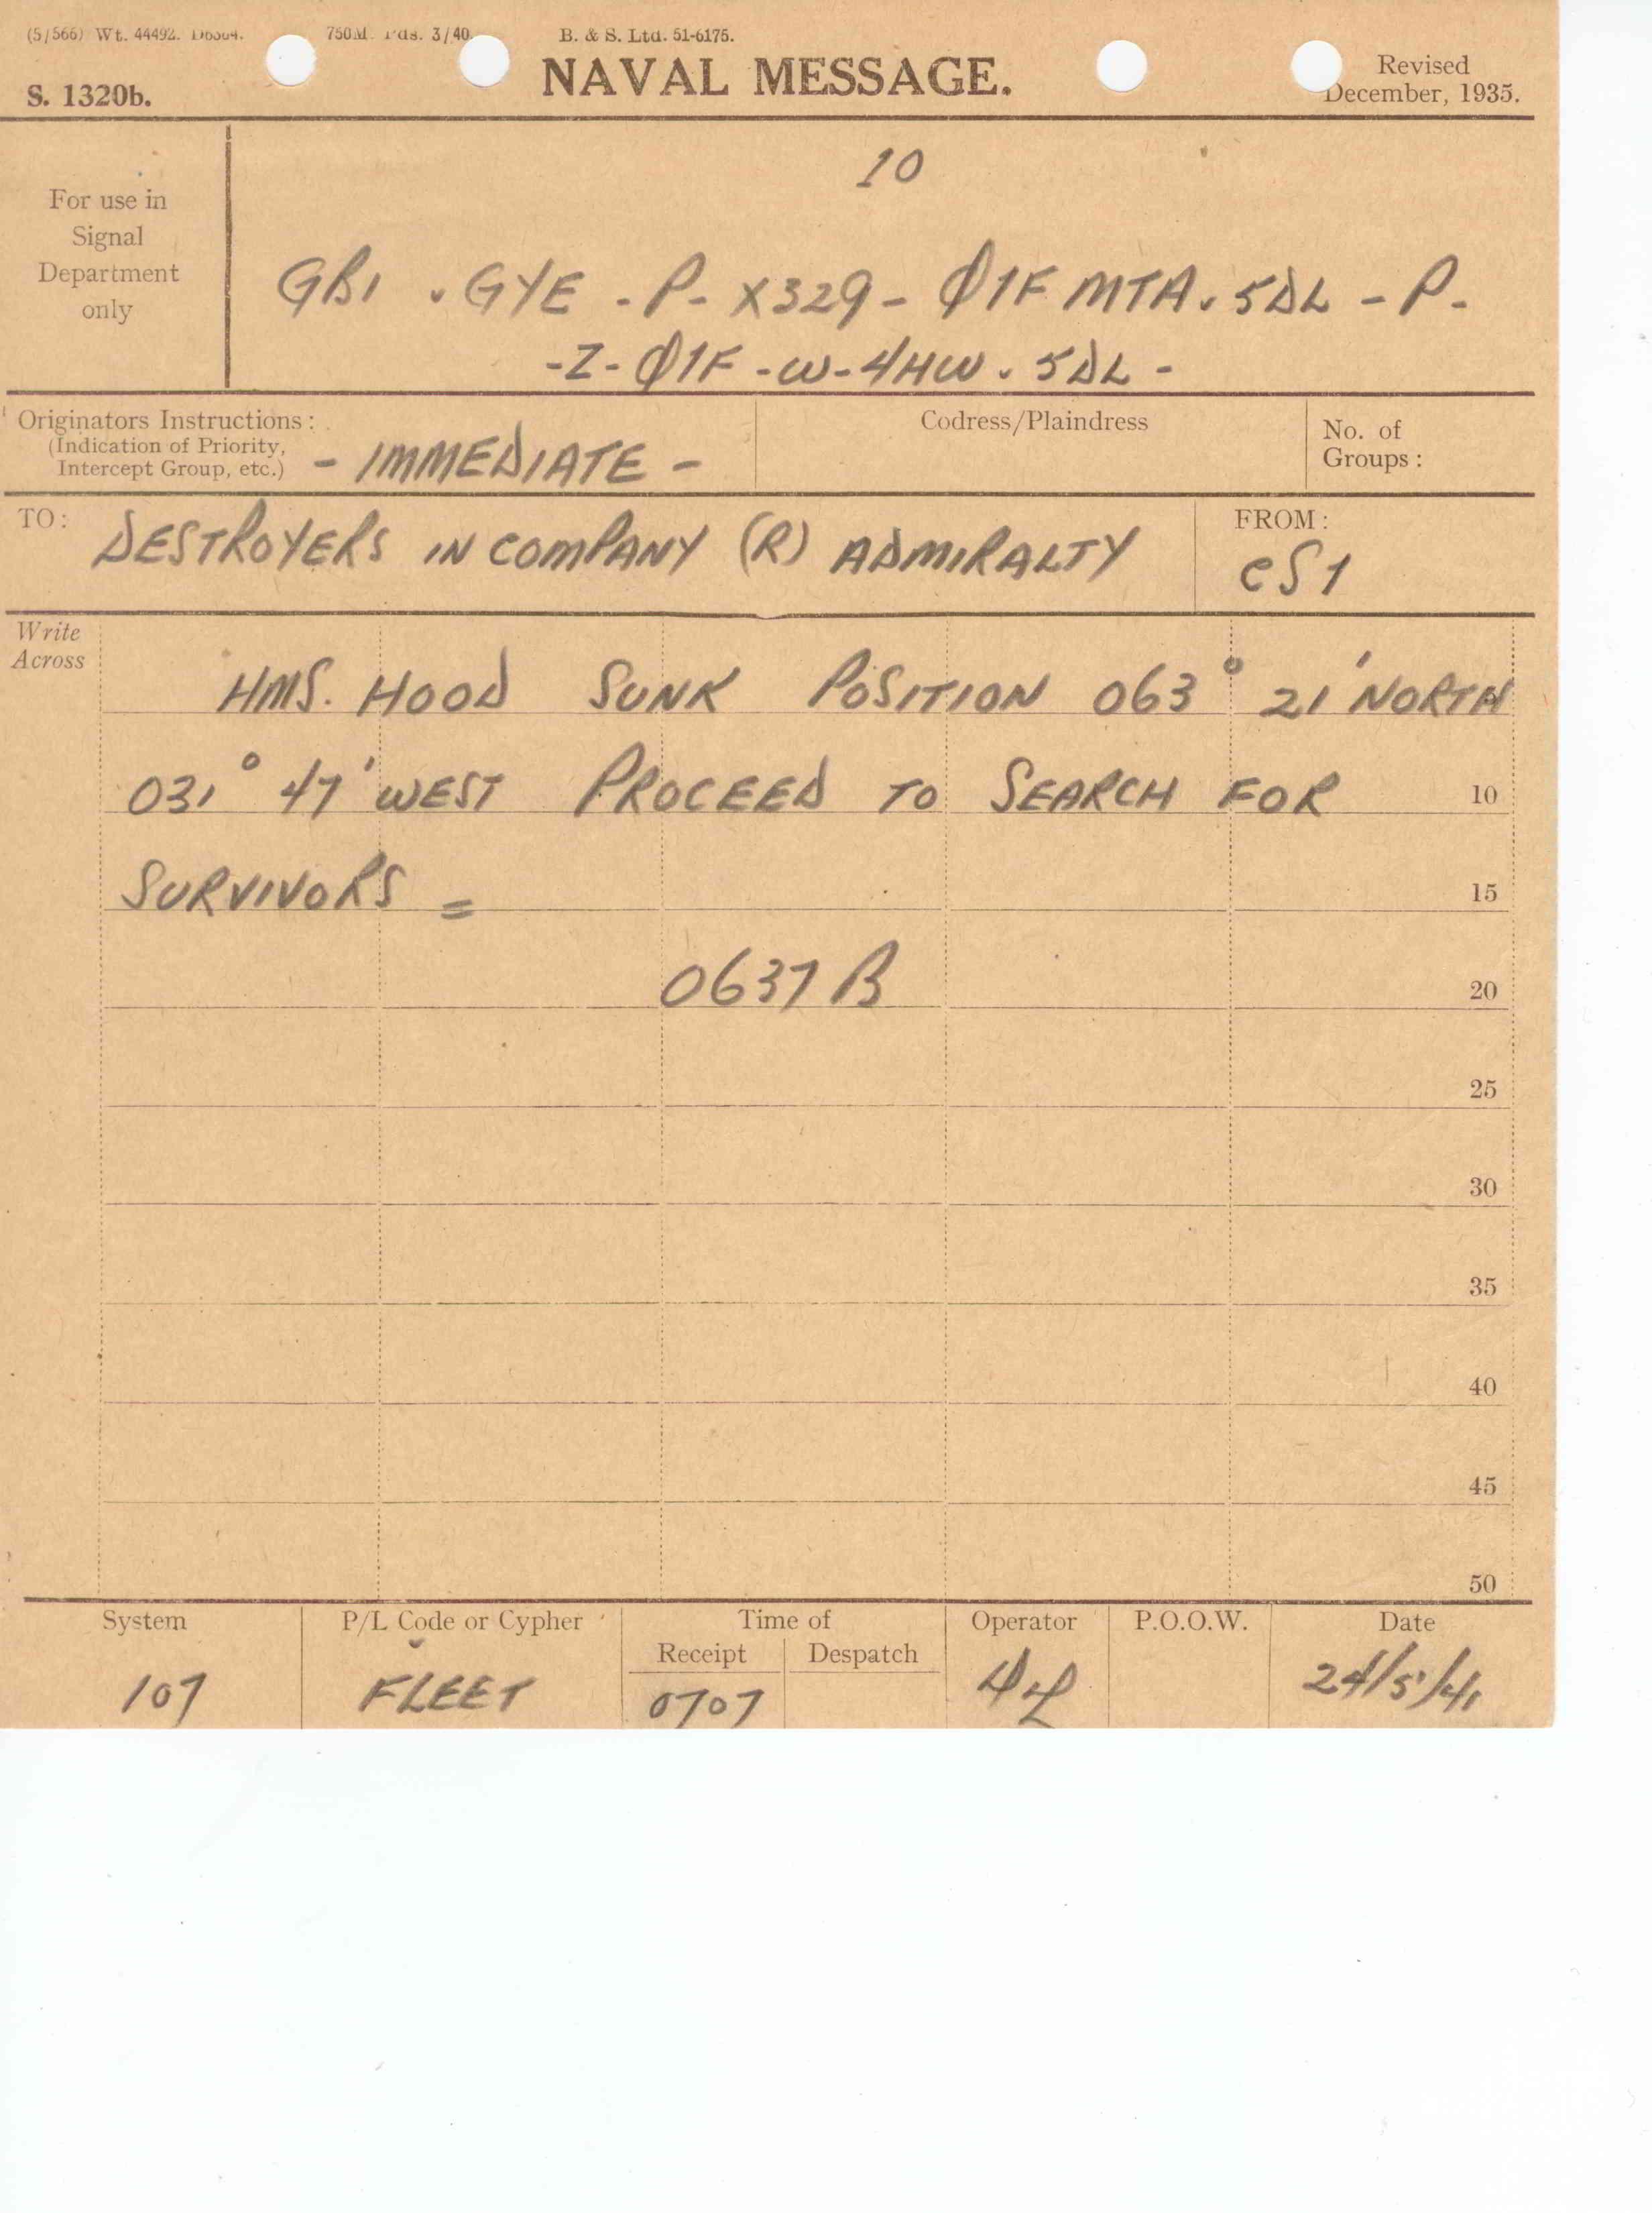 (5/566) Wt. 44492. D6304. 750M. Pds. 3/40. B. & S. Ltd. 51-6175.
S. 1320b.
NAVAL MESSAGE.
Revised
December, 1935.
For use in
Signal
Department
only
10
GB1 . GYE - P - X329 - Ø1F MTA . 5DL - P -
- Z - Ø1F - W - 4HW . 5DL -
Originators Instructions :
(Indication of Priority,
Intercept Group, etc.)
- IMMEDIATE -
Codress/Plaindress
No. of
Groups :
TO:
DESTROYERS IN COMPANY (R) ADMIRALTY
FROM :
CS1
Write
Across
HMS. HOOD SUNK POSITION 063° 21' NORTH
031° 47' WEST PROCEED TO SEARCH FOR 10
SURVIVORS = 15
0637 B 20
25
30
35
40
45
50
System
P/L Code or Cypher
Time of
Receipt
Despatch
Operator
P.O.O.W.
Date
107 FLEET 0707 24/5/41